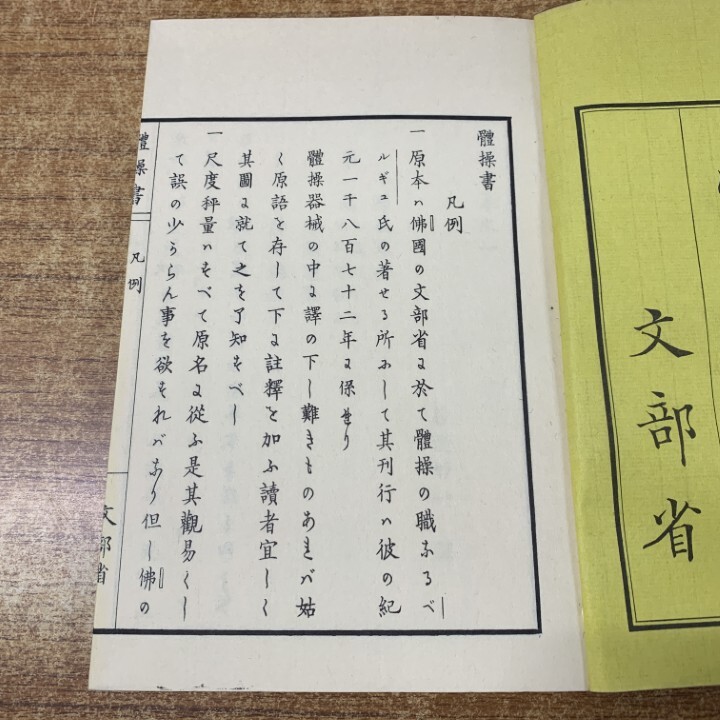 文部省
體操書
凡例
一原本ハ佛國の文部省に於て體操の職なるべ
ルギュ氏の著せる所にして其刊行ハ彼の紀
元一千八百七十二年に係れり
體操器械の中に譯の下し難きものあれバ姑
く原語を存して下に註釋を加ふ讀者宜しく
其圖に就て之を了知すべし
一尺度秤量ハすべて原名に從ふ是其觀易くし
て誤の少からん事を欲すれバなり但し佛の
體操書 凡例 文部省